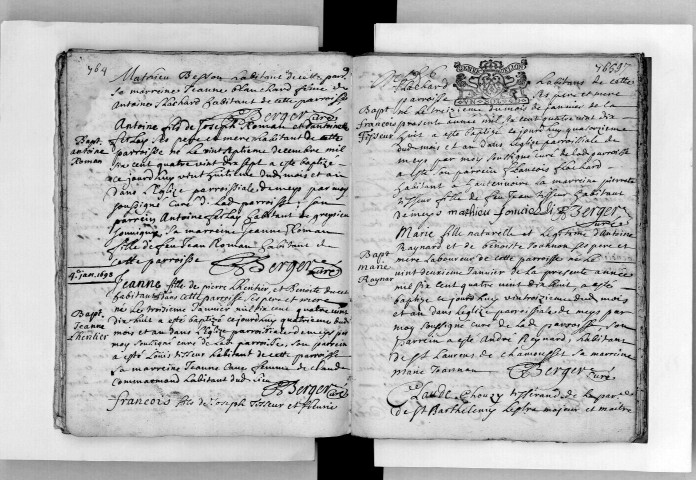 764
Mathieu Besson habitant de cette par.
Sa marreine Jeanne blanchard femme de
Antoine flachard habitant de cette parroisse
Berger curé
Bapt
antoine
Roman
Antoine fils de Joseph Roman et
ses pere et mere habitant de cette
parroisse né le vint septieme decembre mil
six cent quatre vint dix sept a esté baptizé
ce jourdhuy vint huitieme dud mois et an
dans l'Eglise parroissiale de meys par moy
soussigné curé de lad parroisse, son
parrein Antoine habitant de
Sa marreine Jeanne Roman
fille de feu Jean Roman habitant de
cette parroisse
Berger curé
4e jan. 1698
Bapt.
Jeanne
Lhentier
Jeanne fille de pierre Lhentier, et Benoite
habitans dans cette parroisse, ses pere et mere
née le troizieme Janvier mil six cent quatre vint
dix huit a esté baptizé ce jourdhuy quatrieme dud
mois et an dans L'Eglise parroissiale de meys par
moy soussigné curé de lad parroisse, son parrein
a esté Louis tisseur habitant de cette parroisse
Sa marreine Jeanne femme de claude
habitant dud lieu
Berger curé
francois fils de Joseph Tisseur et fleurie
765
Bapt
Francois
Tisseur
flachard habitans de cette
parroisse ses pere et mere
né le treizieme du mois de Janvier de la
presente année mil six cent quatre vint dix
huit a esté baptizé ce jourdhuy quatorzieme
dud mois et an dans Leglise parroissiale de
meys par moy soussigné curé de lad parroisse
a esté son parrein francois flachard
habitant a la marreine pierrette
tisseur fille de feu Jean tisseur habitant
de meys mathieu
Berger curé
Bapt
marie
Raynar
Marie fille naturelle et legitime d'Antoine
Raynard et de benoiste Joannon ses pere et
mere Laboureur de cette parroisse née le
vint deuxieme Janvier de la presente année
mil six cent quatre vint dix huit, a esté
baptizé ce jourdhuy vint troizieme dud mois
et an dans Leglise parroissiale de meys par
moy soussigné curé de lad parroisse, son
parrein a esté André Reynard, habitant
de St Laurens de chamousset Sa marreine
marie Joannon
Berger curé
Claude Chouzy tisserand de la par. de
de St Barthelemy Lestra majeur et maitre